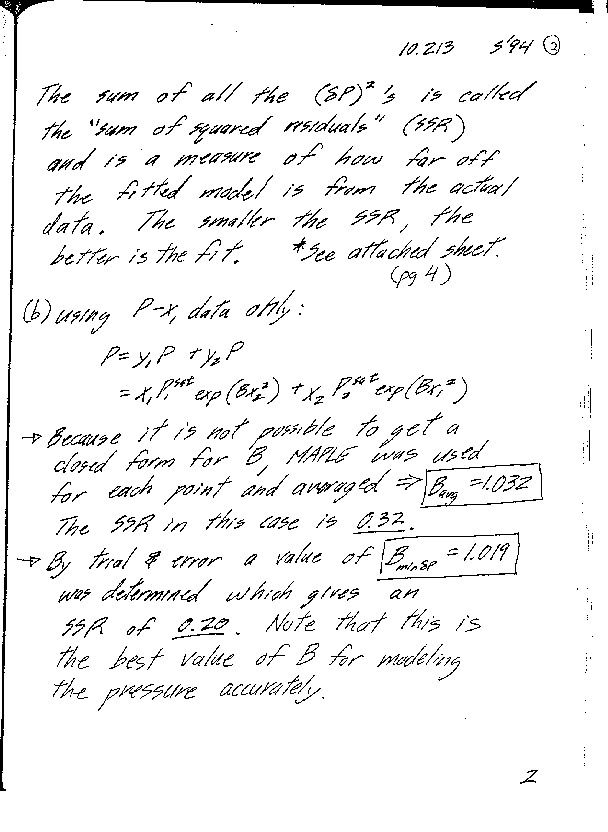 10.213 S'94 ②
The sum of all the (δP)²'s is called
the "sum of squared residuals" (SSR)
and is a measure of how far off
the fitted model is from the actual
data. The smaller the SSR, the
better is the fit. *See attached sheet.
(pg 4)
(b) using P-x, data only:
P = y₁P + y₂P
= x₁P₁ˢᵃᵗ exp(Bx₂²) + x₂P₂ˢᵃᵗ exp(Bx₁²)
→ Because it is not possible to get a
closed form for B, MAPLE was used
for each point and averaged ⇒ B_avg = 1.032
The SSR in this case is 0.32.
→ By trial & error a value of B_minδP = 1.019
was determined which gives an
SSR of 0.20. Note that this is
the best value of B for modeling
the pressure accurately.
2